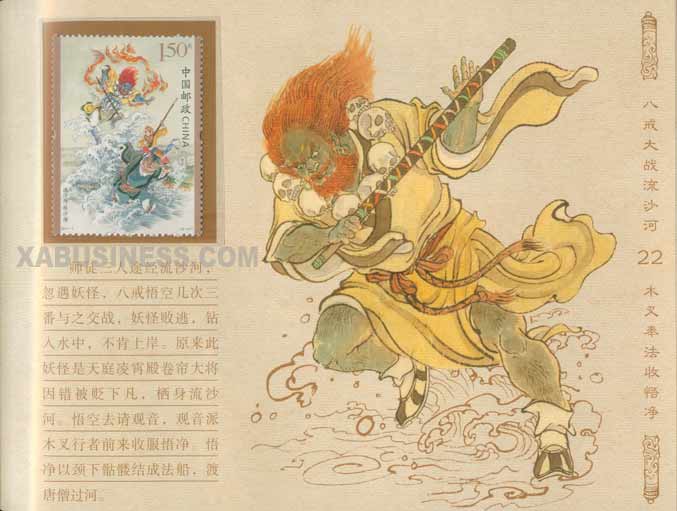 150
中国邮政 CHINA
XABUSINESS.COM
师徒三人途经流沙河，
忽遇妖怪，八戒悟空几次三
番与之交战，妖怪败逃，钻
入水中，不肯上岸。原来此
妖怪是天庭凌霄殿卷帘大将
因错被贬下凡，栖身流沙
河。悟空去请观音，观音派
木叉行者前来收服悟净。悟
净以颈下骷髅结成法船，渡
唐僧过河。
八戒大战流沙河
22
木叉奉法收悟净